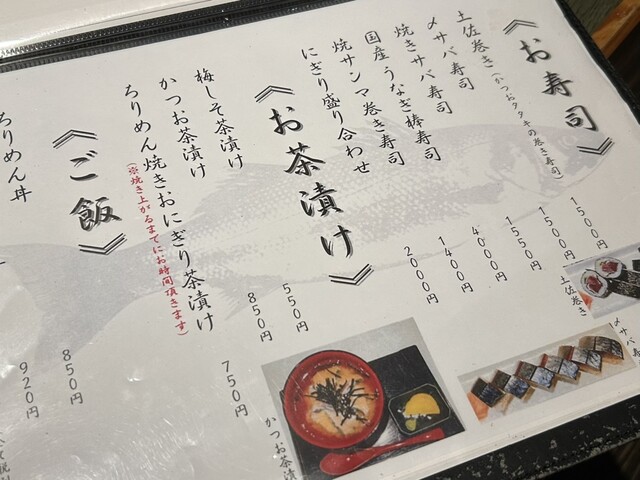 《お寿司》
土佐巻き(かつおタタキの巻き寿司) 1500円
〆サバ寿司 1500円
焼きサバ寿司 1550円
国産うなぎ棒寿司 4000円
焼サンマ巻き寿司 1400円
にぎり盛り合わせ 2000円
《お茶漬け》
梅しそ茶漬け 550円
かつお茶漬け 850円
ちりめん焼きおにぎり茶漬け 750円
(※焼き上がるまでにお時間頂きます)
《ご飯》
ちりめん丼 850円
920円
土佐巻き
〆サバ寿
かつお茶漬